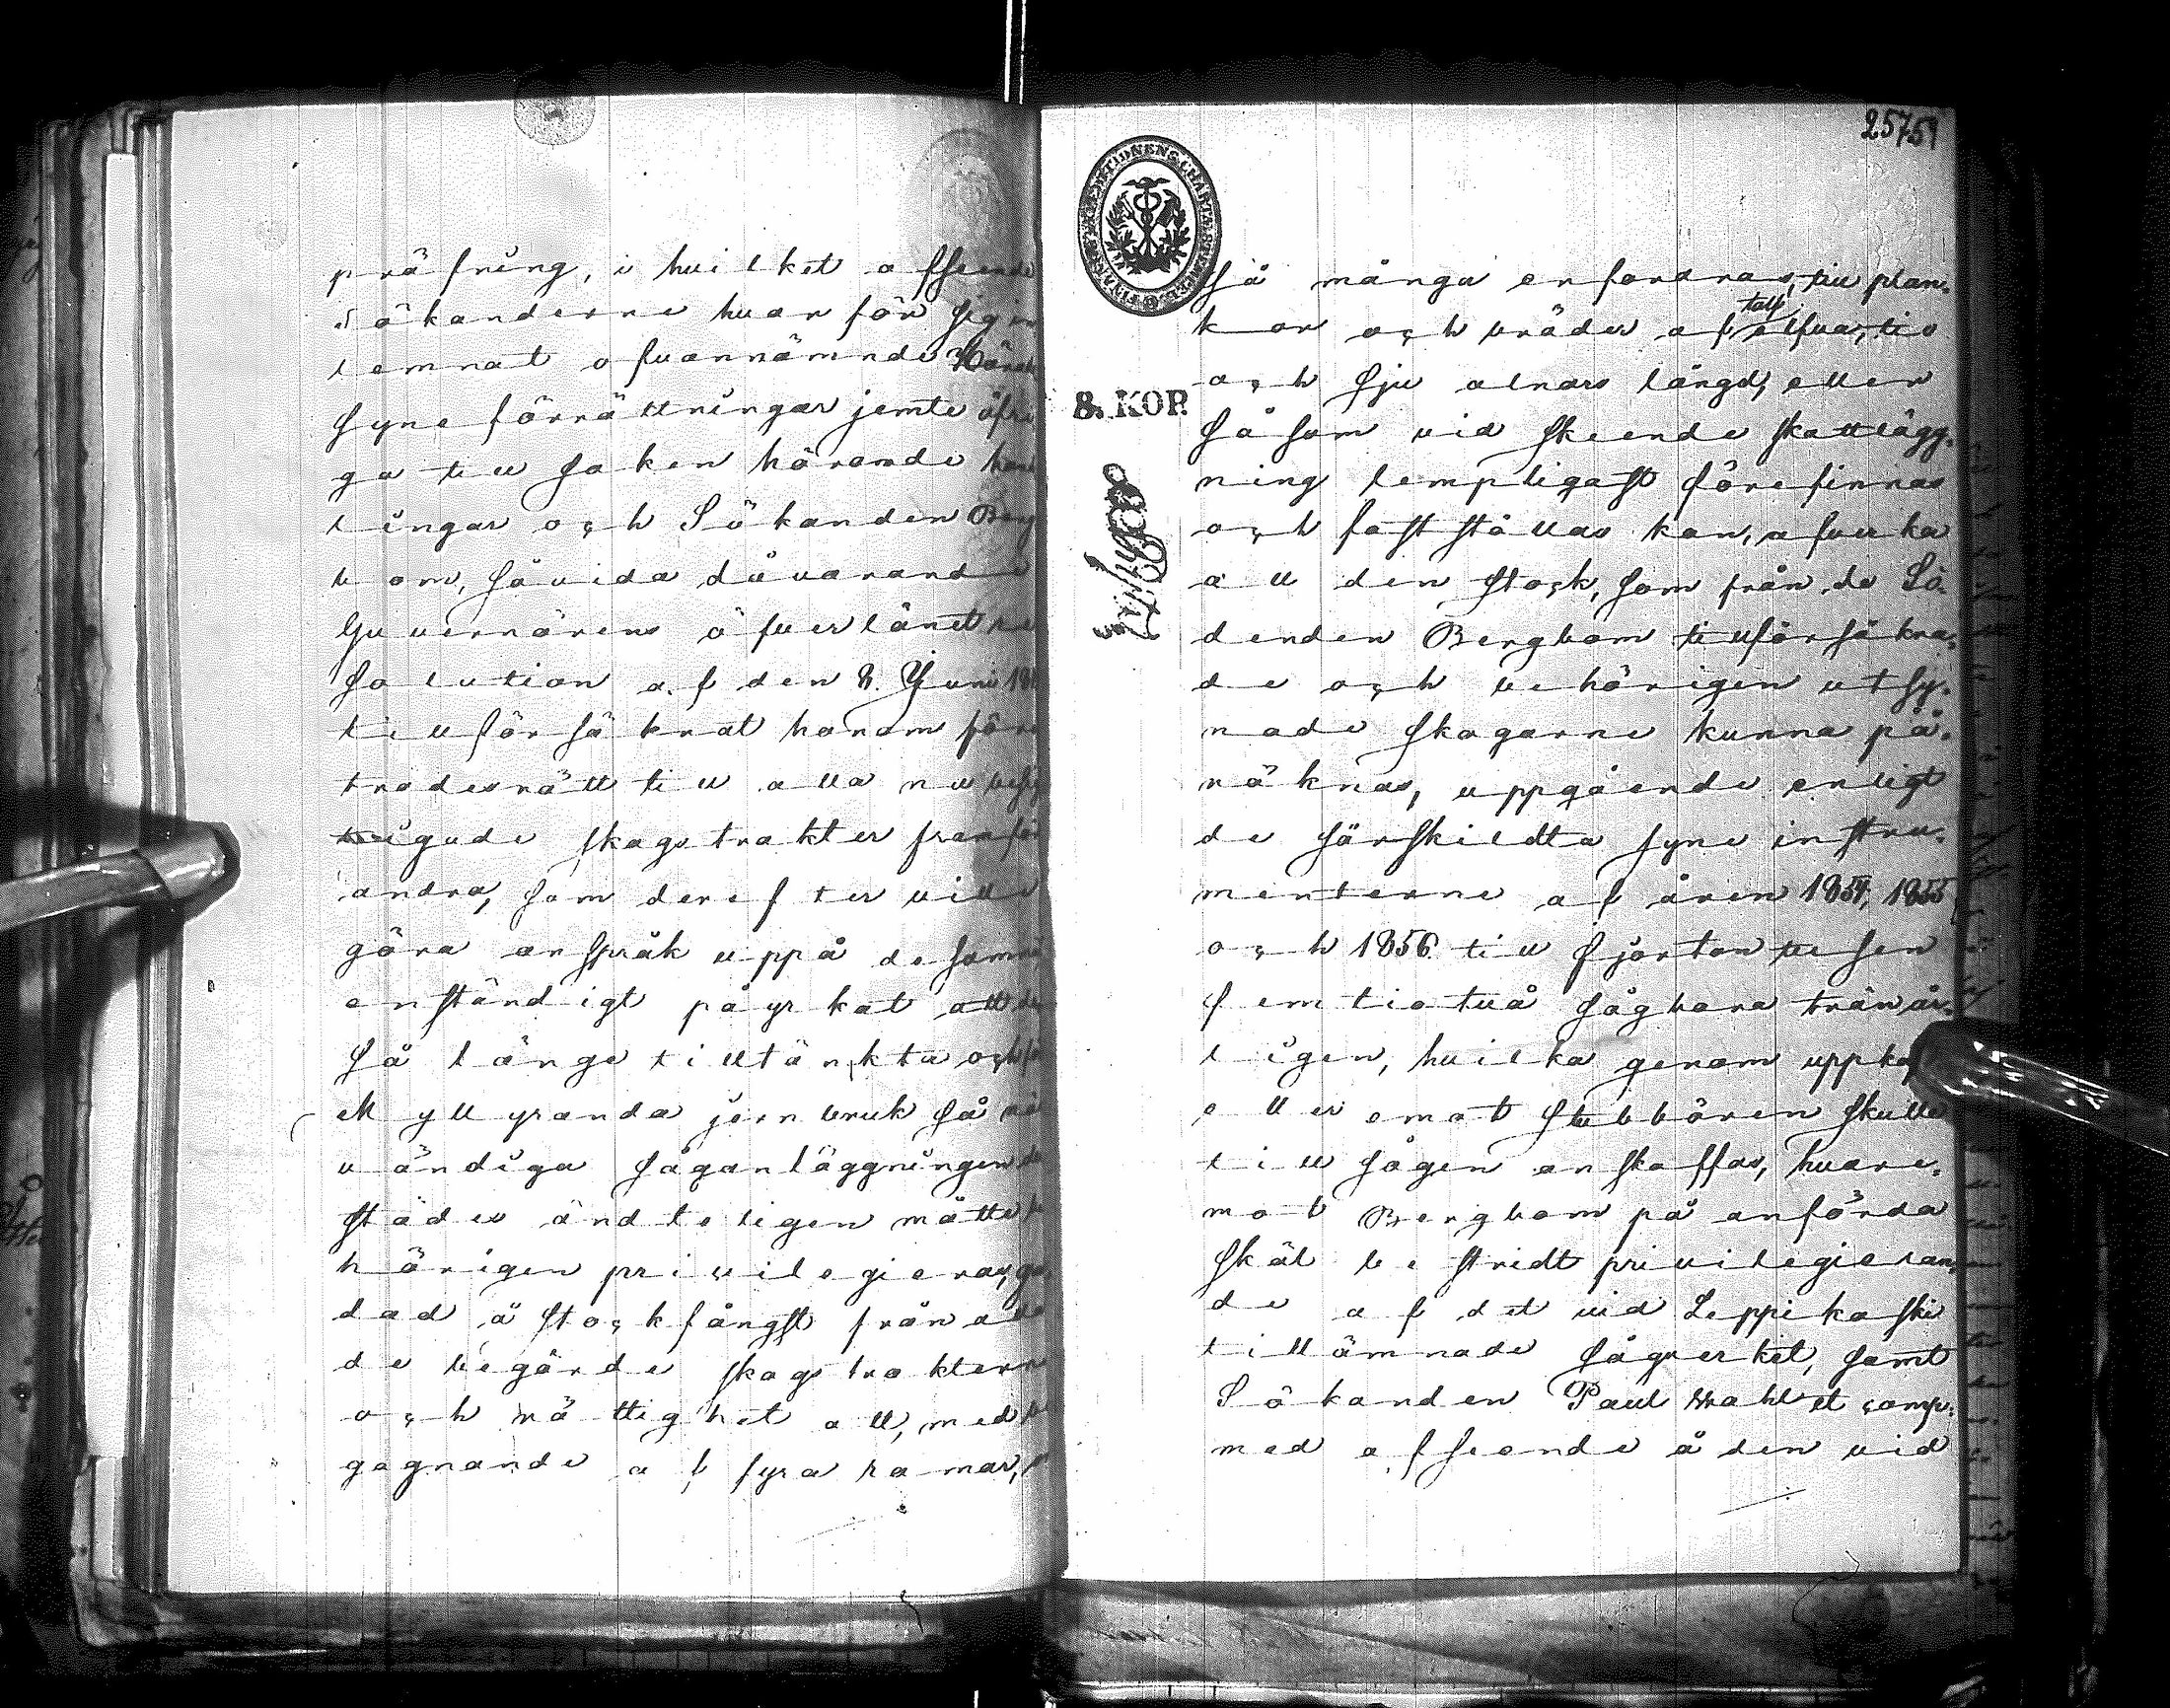 pröfning, i hvilket afseende
Sökanderne hvar för sig in
lemnat ofvannämnde Härads
syne förrättningar jemte öfri
ga till saken hörande hand
lingar och Sökanden Berg
bom, såvida dåvarande
Guvernörens öfver länet re
solution af den 8. Juni
tillförsäkrat honom före
trädesrätt till alla nu besig
tigade skogstrakter framför
andra, som derefter ville
göra anspråk uppå desamma
enständigt påyrkat att de
så länge tilltänkta och för
Myllyranda jernbruk så nöd
vändiga såganläggningen der
städes ändteligen måtte be
hörigen privilegieras, grun
dad å stockfångst från alle
de begärde skogstrakterne
och rättighet att, med be
gagnande af fyra ramar,
2575
FINANS EXPEDITIONENS CHARTÆ STÄMPEL
8. KOP.
så många erfordras, till plan-
kor och bräder af tolf alnar, tio
och sju alnars längd, eller
såsom vid skeende skattlägg-
ning lempligast förefinnas
och fastställas kan, afverka
all den stock, som från de Sö-
kanden Bergbom tillförsäkra-
de och behörigen utsy-
nade skogarne kunna på-
räknas, uppgående enligt
de särskildta syne instru-
menterne af åren 1854, 1855
och 1856 till fjorton tusen
femtiotvå sågbara trän år-
ligen, hvilka genom uppköp
eller emot stubbören skulle
till sågen anskaffas, hvare-
mot Bergbom på anförda
skäl bestridt privilegieran-
de af det vid Leppikoski
tillämnade sågverket, samt
Sökanden Paul Wahl et comp.
med afseende å den vid